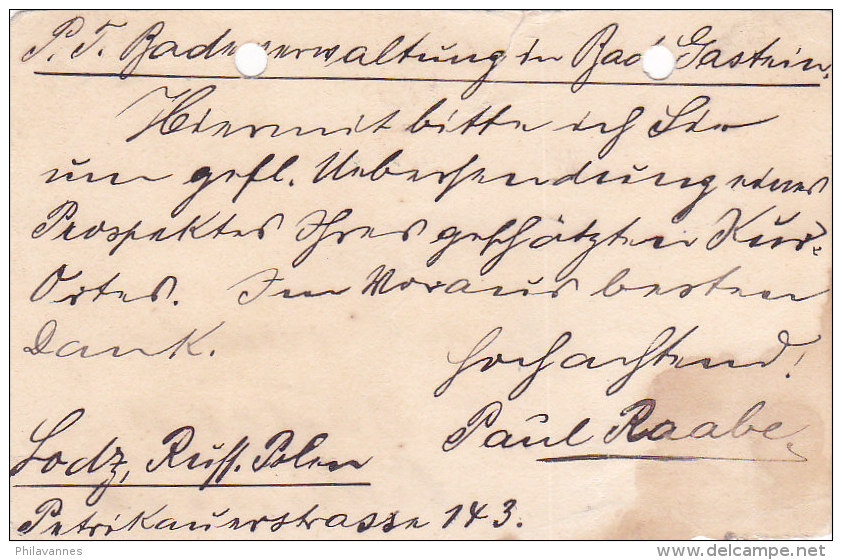 P. T. Badeverwaltung in Bad Gastein.
Hiermit bitte ich Sie
um gefl. Uebersendung eines
Prospektes Ihres geschätzten Kur-
Ortes. Im Voraus besten
Dank.
Hochachtend!
Paul Raabe
Lodz, Russ. Polen
Petrikauerstrasse 143.
Philavannes
www.delcampe.net